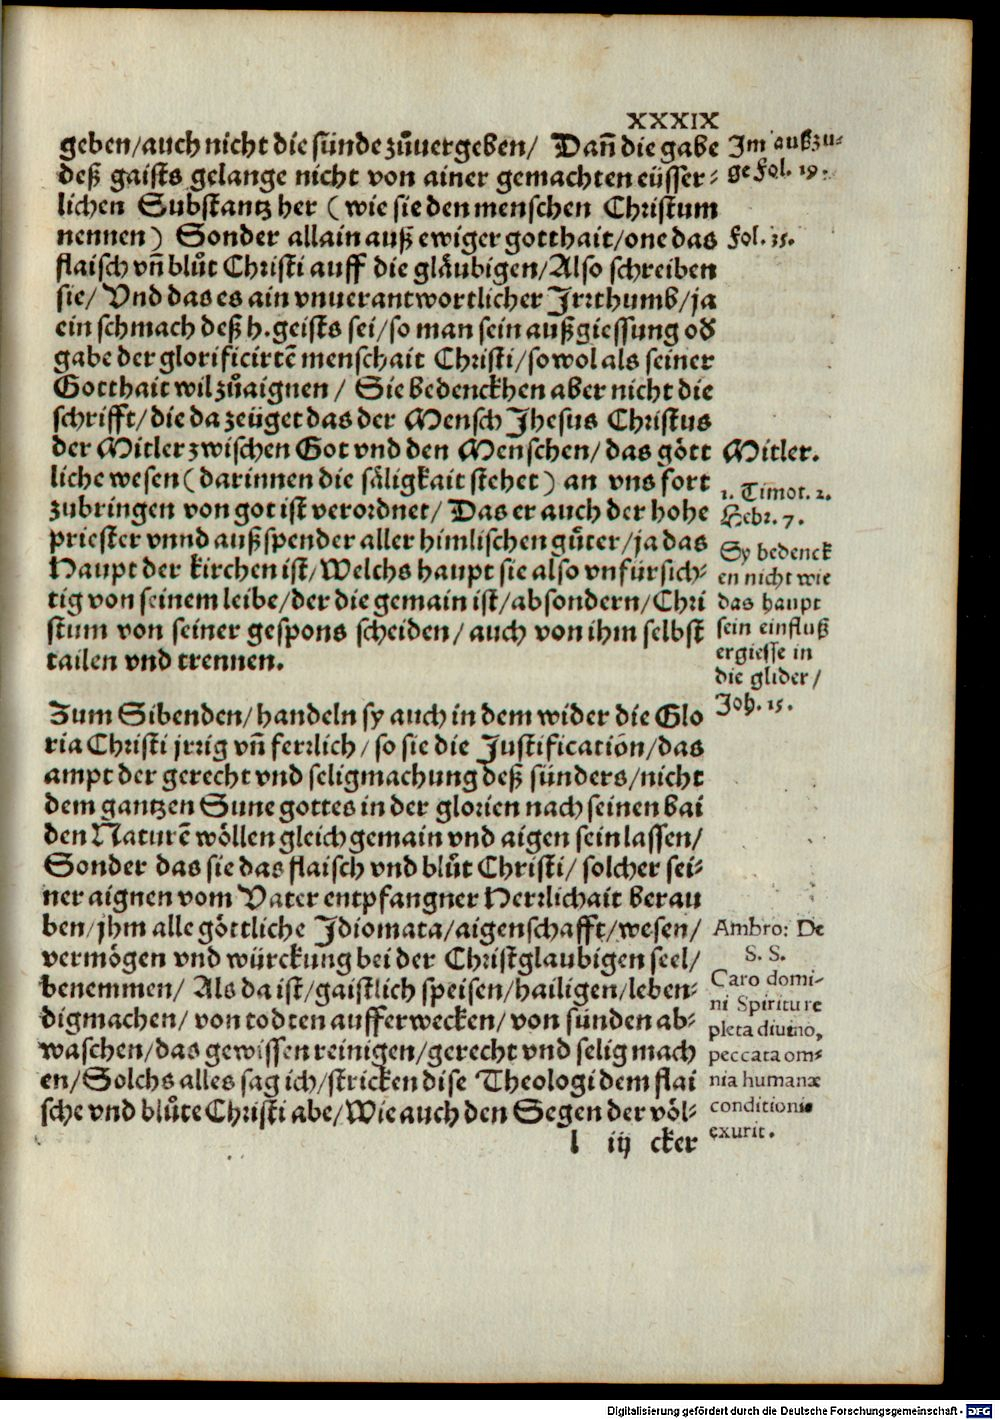 XXXIX
geben/auch nicht die sünde zůuergeben/ Dañ die gabe
deß gaists gelange nicht von ainer gemachten eüsser⸗
lichen Substantz her (wie sie den menschen Christum
nennen) Sonder allain auß ewiger gotthait/one das
flaisch vñ blůt Christi auff die gläubigen/Also schreiben
sie/ Vnd das es ain vnuerantwortlicher Jrrthumb/ja
ein schmach deß h.geists sei/so man sein außgiessung od̕
gabe der glorificirtē menschait Christi/so wol als seiner
Gotthait wil zůaignen/ Sie bedenckhen aber nicht die
schrifft/die da zeüget das der Mensch Jhesus Christus
der Mitler zwischen Got vnd den Menschen/das gött
liche wesen (darinnen die säligkait stehet) an vns fort
zubringen von got ist verordnet/ Das er auch der hohe
priester vnnd außspender aller himlischen gůter/ja das
Haupt der kirchen ist/Welchs haupt sie also vnfürsich⸗
tig von seinem leibe/der die gemain ist/absondern/Chri
stum von seiner gespons scheiden/auch von ihm selbst
tailen vnd trennen.
Im außzu⸗
ge Fol. 19.
Fol. 35.
Mitler.
1. Timot. 2.
Hebr. 7.
Sy bedenck
en nicht wie
das haupt
sein einfluß
ergiesse in
die glider/
Joh. 15.
Zum Sibenden/handeln sy auch in dem wider die Glo
ria Christi jrrig vñ ferrlich/so sie die Justification/das
ampt der gerecht vnd seligmachung deß sünders/nicht
dem gantzen Sune gottes in der glorien nach seinen bai
den Naturē wöllen gleich gemain vnd aigen sein lassen/
Sonder das sie das flaisch vnd blůt Christi/solcher sei⸗
ner aignen vom Vater entpfangner Herrlichait berau
ben/jhm alle göttliche Idiomata/aigenschafft/wesen/
vermögen vnd würckung bei der Christglaubigen seel/
benemmen/ Als da ist/gaistlich speisen/hailigen/leben⸗
digmachen/von todten aufferwecken/von sünden ab⸗
waschen/das gewissen reinigen/gerecht vnd selig mach
en/Solchs alles sag ich/stricken dise Theologi dem flai
sche vnd blůte Christi abe/Wie auch den Segen der völ⸗
Ambro: De
S. S.
Caro domi-
ni Spiritu re
pleta diuino,
peccata om-
nia humanæ
conditionis
exurit.
l iij cker
Digitalisierung gefördert durch die Deutsche Forschungsgemeinschaft - DFG